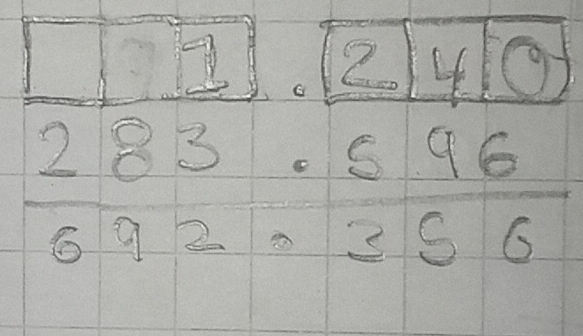 1.240
283.596
692.356